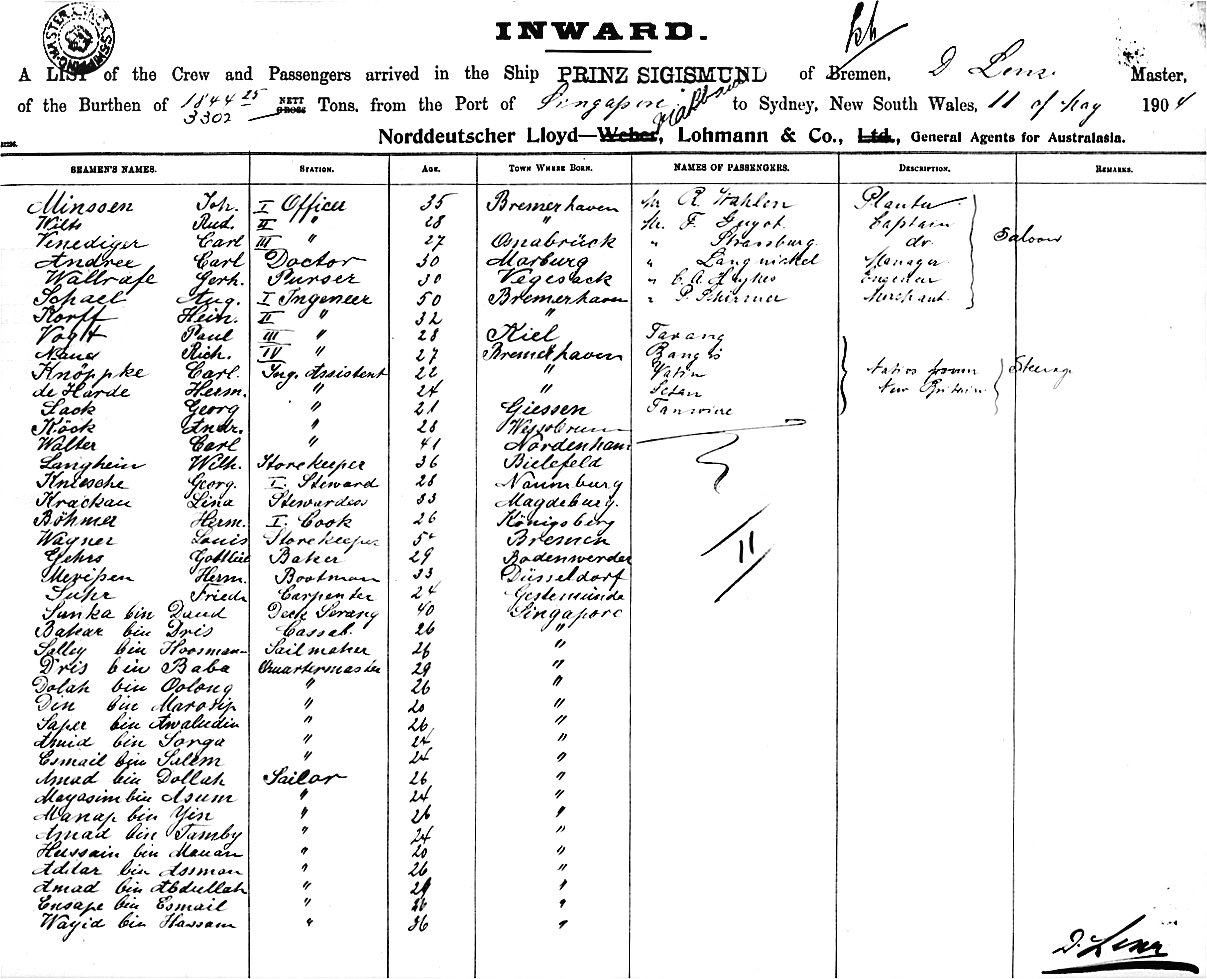 INWARD.
A LIST of the Crew and Passengers arrived in the Ship PRINZ SIGISMUND of Bremen, D Lenz Master,
of the Burthen of 1844 25 3302 NETT GROSS Tons. from the Port of Singapore to Sydney, New South Wales, 11 of May 1904
Norddeutscher Lloyd—Weber, Lohmann & Co., Ltd., General Agents for Australasia.
SEAMEN'S NAMES. STATION. AGE. TOWN WHERE BORN. NAMES OF PASSENGERS. DESCRIPTION. REMARKS.
Minssen Joh. I Officer 35 Bremerhaven Mr R. Wahlen Planter
Wilts Rud. II " 28 " Mr. F. Guyot Captain
Venediger Carl III " 27 Osnabrück " Strassburg. dr. Saloon
Andree Carl Doctor 30 Marburg " Manager
Wallrafe Gerh. Purser 30 Vegesack " C. A. Engineer
Schael Aug. I Ingeneer 50 Bremerhaven " P. Schirmer Merchant
Korff Hein. II " 32 "
Vogtt Paul III " 28 Kiel Tarang
Rich. IV " 27 Bremerhaven
Knöppke Carl. Ing. Assistent 22 " Watin Natives from Steerage
de Harde Herm. " 24 " New Britain
Sack Georg " 21 Giessen
Köck Andr. " 28
Walter Carl " 41 Nordenham
Langhein Wilh. Storekeeper 36 Bielefeld
Kniesche Georg. I. Steward 28 Naumburg
Krackau Lina Stewardess 33 Magdeburg.
Böhmer Herm. I. Cook 26 Königsberg
Wagner Louis Storekeeper 54 Bremen
Gehrs Gottlieb Baker 29 Bodenwerder
Mevissen Herm. Bootman 33 Düsseldorf
Suhr Friedr Carpenter 24 Gestemünde
Sunka bin Daud Deck Serang 40 Singapore
Bakar bin Dris Cassab. 26 "
Salley bin Hoosman Sailmaker 26 "
Dris bin Baba Quartermaster 29 "
Dolah bin Oolong " 26 "
Din bin Marosip " 20 "
Saper bin Awaludin " 26 "
Amid bin Sorga " 24 "
Esmail bin Salem " 24 "
Amad bin Dollah Sailor 26 "
Mayasim bin Asum " 24 "
Manap bin Yin " 26 "
Amad bin Tamby " 24 "
Hussain bin Manan " 20 "
bin Assman " 26 "
Amad bin Abdullah " 29 "
Ensape bin Esmail " 26 "
Wayid bin Hassam " 36 "
II
D. Lenz